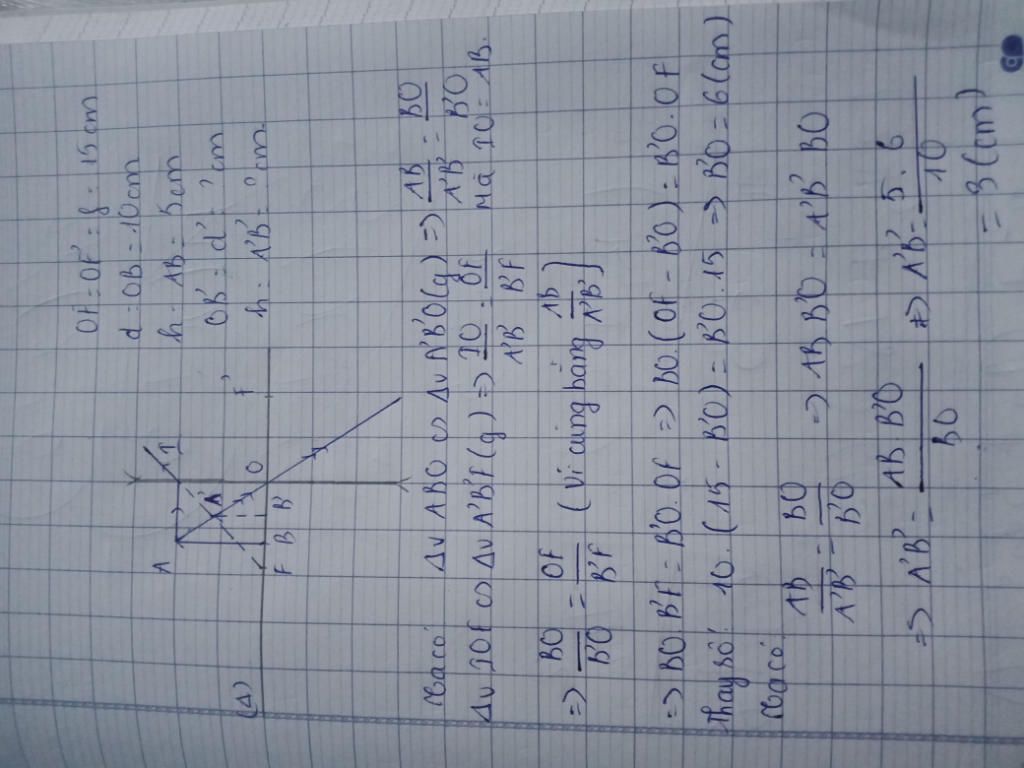 OF = OF' = f = 15 cm
d = OB = 10 cm
h = AB = 5 cm
OB' = d' = ? cm
h = A'B' = ? cm.
A I
(Δ) F B B' O F' A'
Ta có: Δv ABO ∽ Δv A'B'O (g) => AB/A'B' = BO/B'O
Δv IOF ∽ Δv A'B'F (g) => IO/A'B' = OF/B'F Mà IO = AB.
=> BO/B'O = OF/B'F (Vì cùng bằng AB/A'B')
=> BO. B'F = B'O. OF => BO. (OF - B'O) = B'O. OF
Thay số: 10. (15 - B'O) = B'O. 15 => B'O = 6 (cm)
Ta có: AB/A'B' = BO/B'O => AB. B'O = A'B'. BO
=> A'B' = AB. B'O/BO => A'B' = 5. 6/10
= 3 (cm)